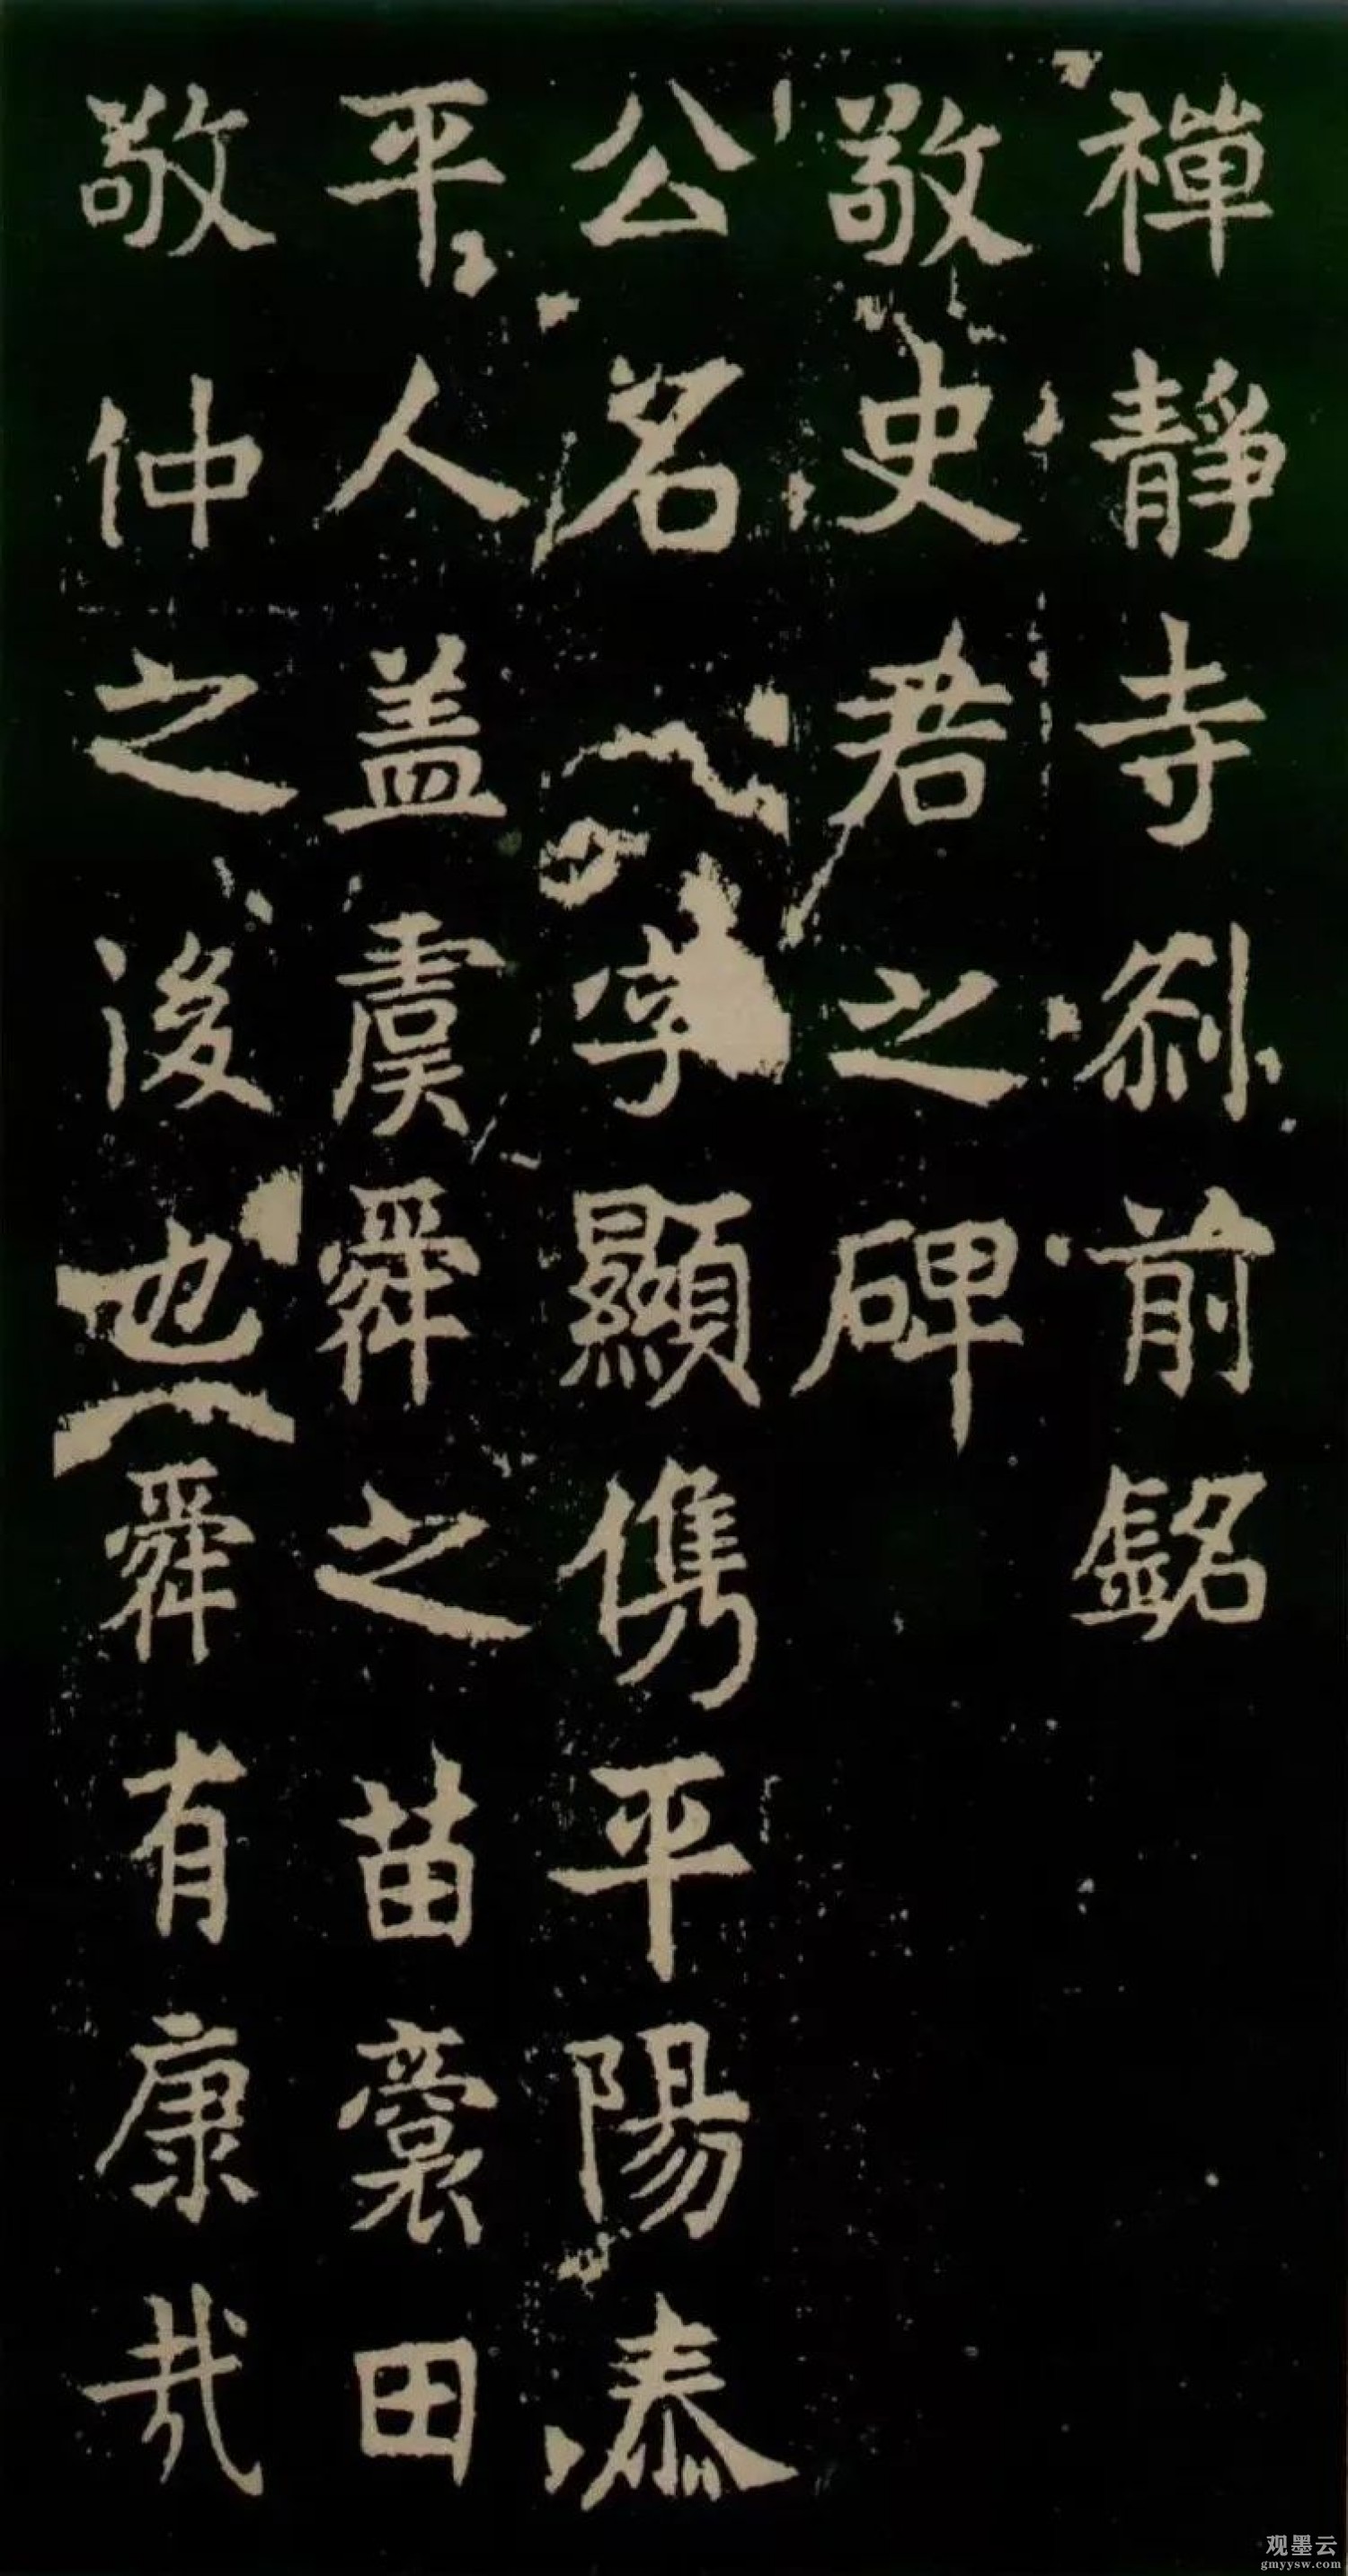 禪靜寺刹前銘
敬史君之碑
公名字顯儁平陽泰
平人盖虞舜之苗裔田
敬仲之後也舜有康哉
观墨云
gmyysw.com